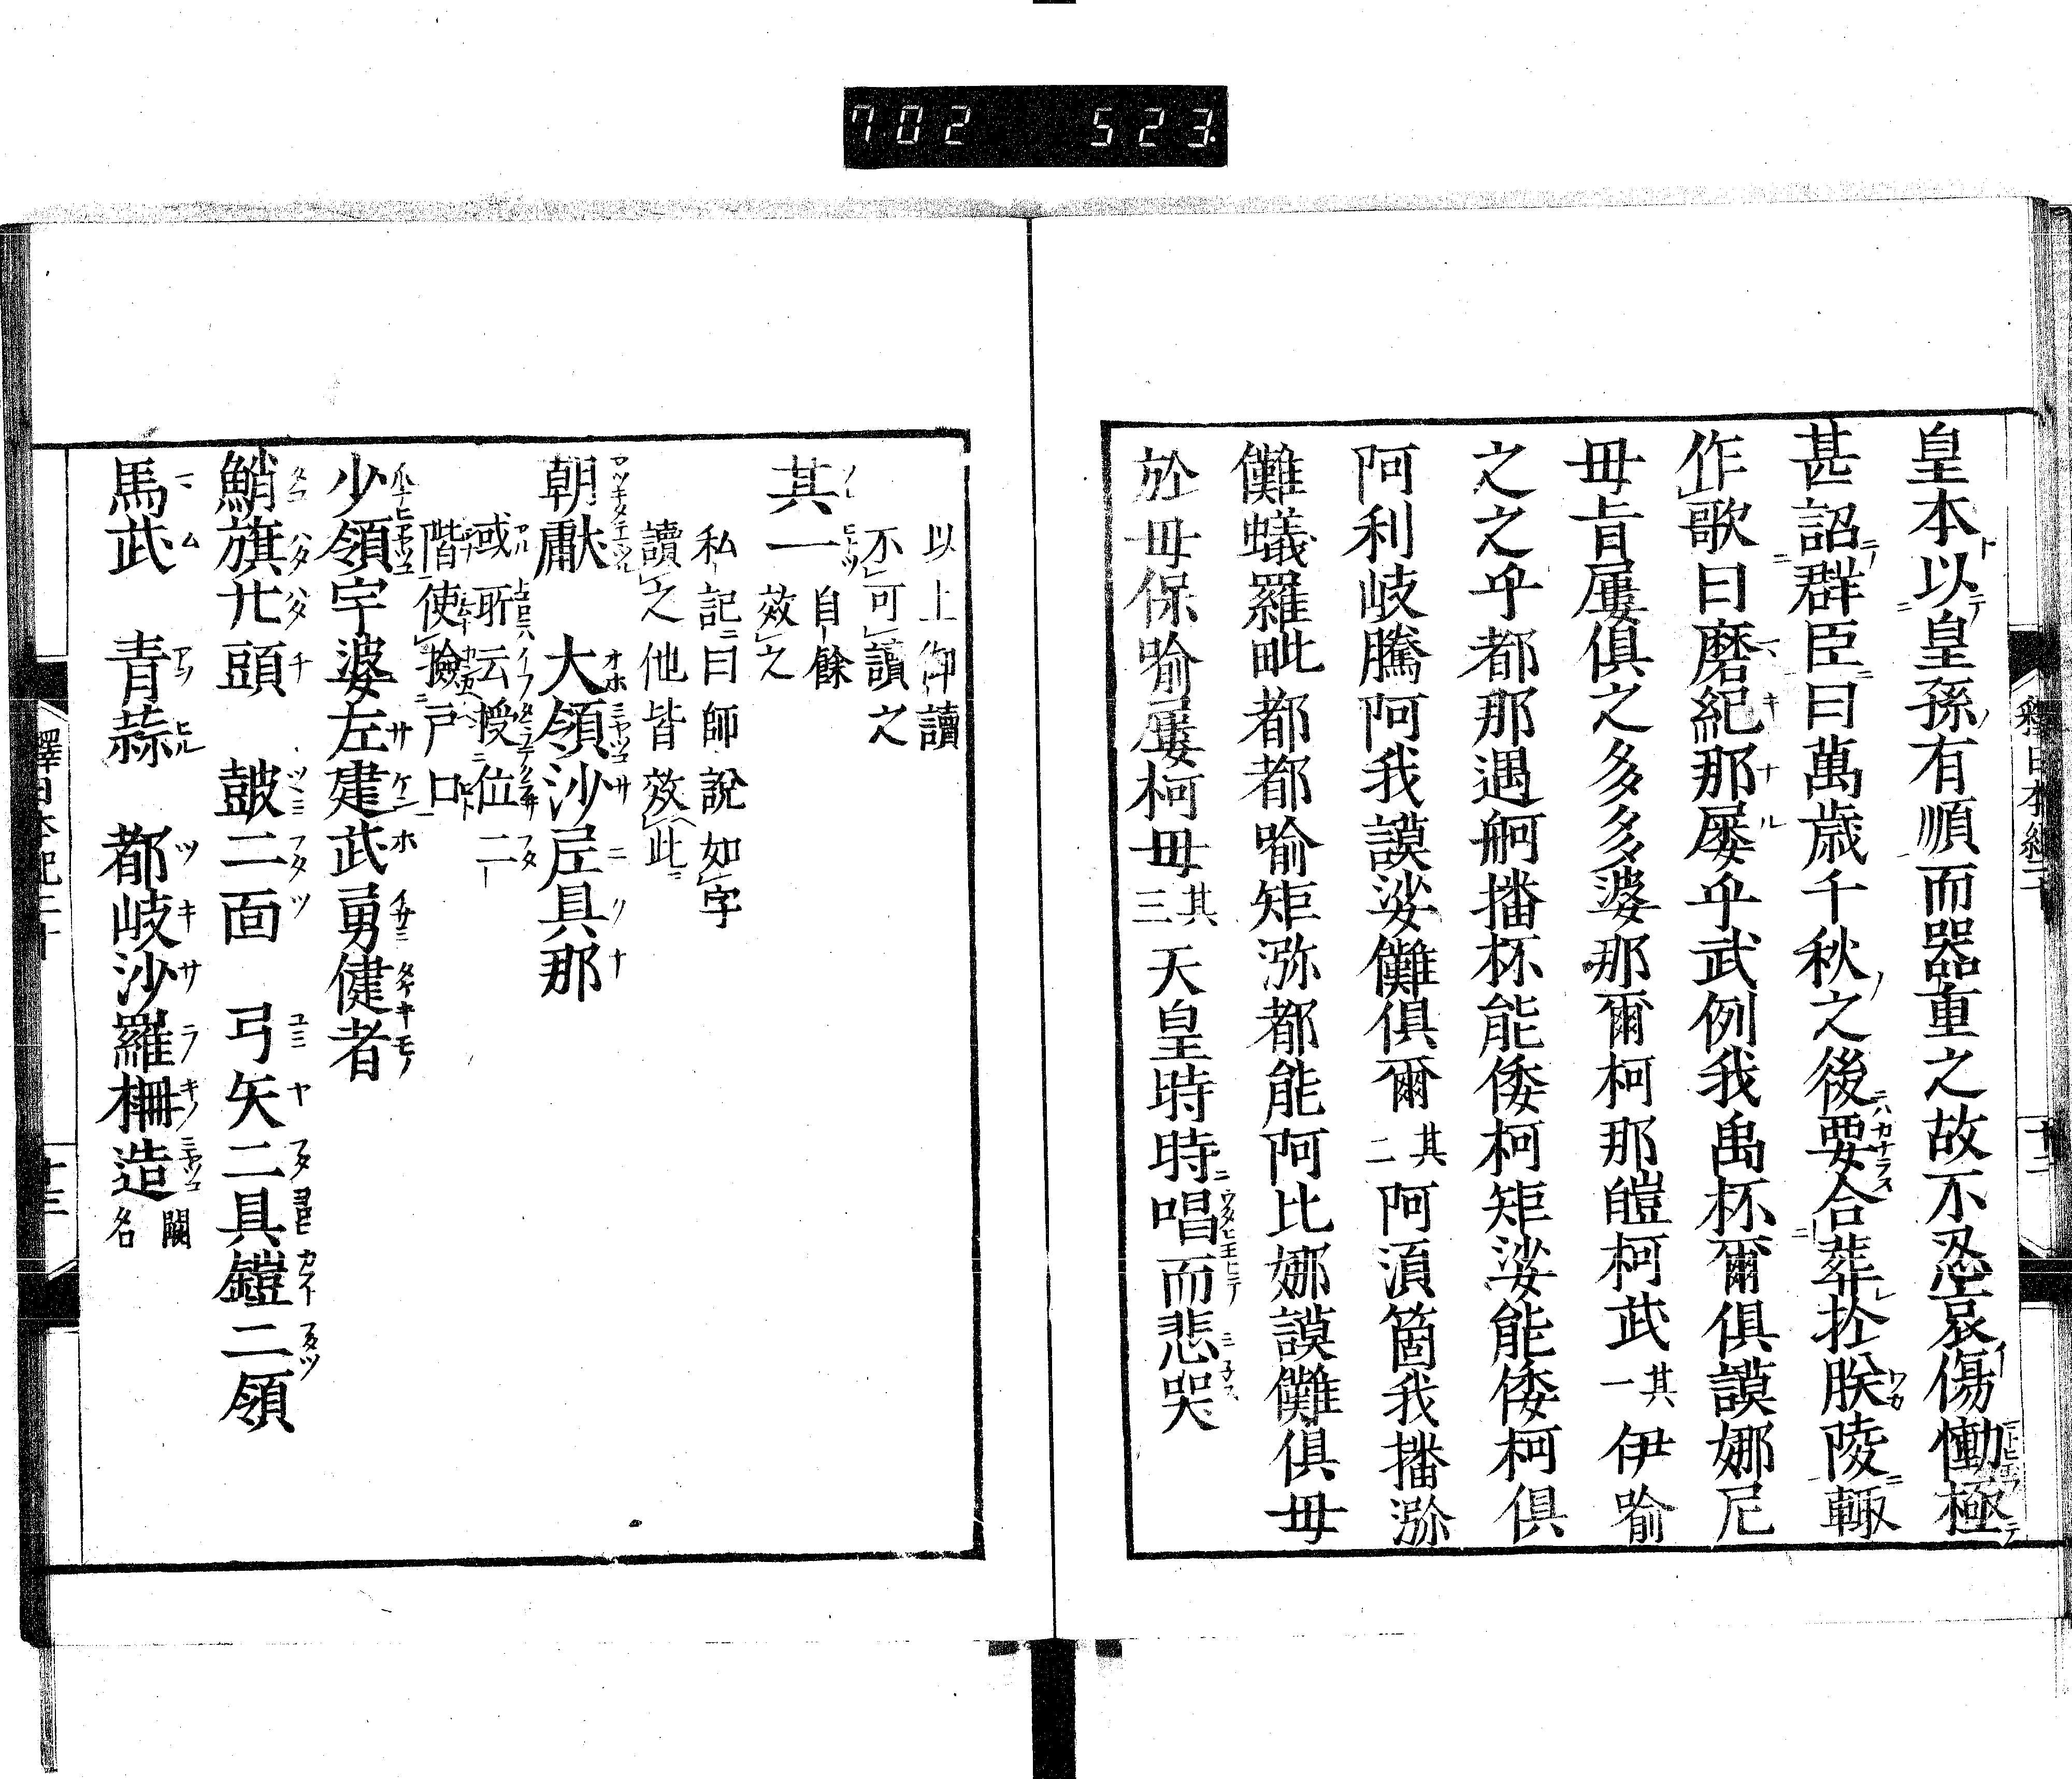 702 523
皇本以皇孫有順而器重之故不忍哀傷慟極
甚詔群臣曰萬歳千秋之後要合葬於朕陵輙
作歌曰磨紀那屡乎武例我禹杯爾倶謨娜尼
毋旨屢倶之多多婆那爾柯那皚柯武其一伊喻
之之乎都那遇舸播杯能倭柯矩娑能倭柯倶
阿利岐騰阿我謨娑儺倶爾其二阿須箇我播濔
儺蟻羅毗都都喻矩濔都能阿比娜謨儺倶毋
於毋保喻屢柯毋其三天皇時時唱而悲哭
以上御讀
不可讀之
其一自餘
效之
私記曰師說如字
讀之他皆效此
朝獻 大領沙尼具那
或所云授位二
階使撿戸口
少領宇婆左建武 勇健者
鮹旗廿頭 鼓二面 弓矢二具鎧二領
馬武 青蒜 都岐沙羅柵造闕名